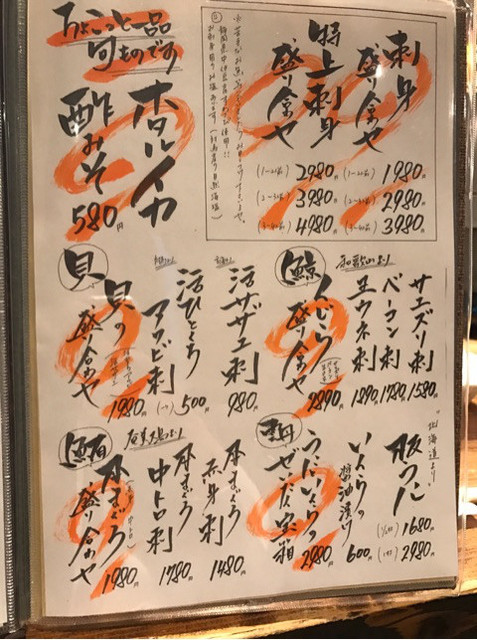 刺身
盛り合わせ
(1~2名) 1980円
(2~3名) 2980円
(3~4名) 3980円
特上刺身
盛り合わせ
(1~2名) 2980円
(2~3名) 3980円
(3~4名) 4980円
ちょこっと一品
旬ものです
ホタルイカ
酢みそ
580円
鯨
和歌山より
サエズリ刺
1580円
ベーコン刺
1780円
ウネ刺
1890円
くじら
盛り合わせ
2890円
貝
活サザエ刺
980円
活ひとくち
アワビ刺
500円
貝の
盛り合わせ
1980円
北海道より
(1/2枚) 1680円
(1枚) 2980円
いくらの
醤油漬け
600円
うに、いくらの
ぜいたく宝箱
2980円
奄美大島より
本まぐろ
赤身刺
1480円
本まぐろ
中トロ刺
1780円
本まぐろ
盛り合わせ
1980円